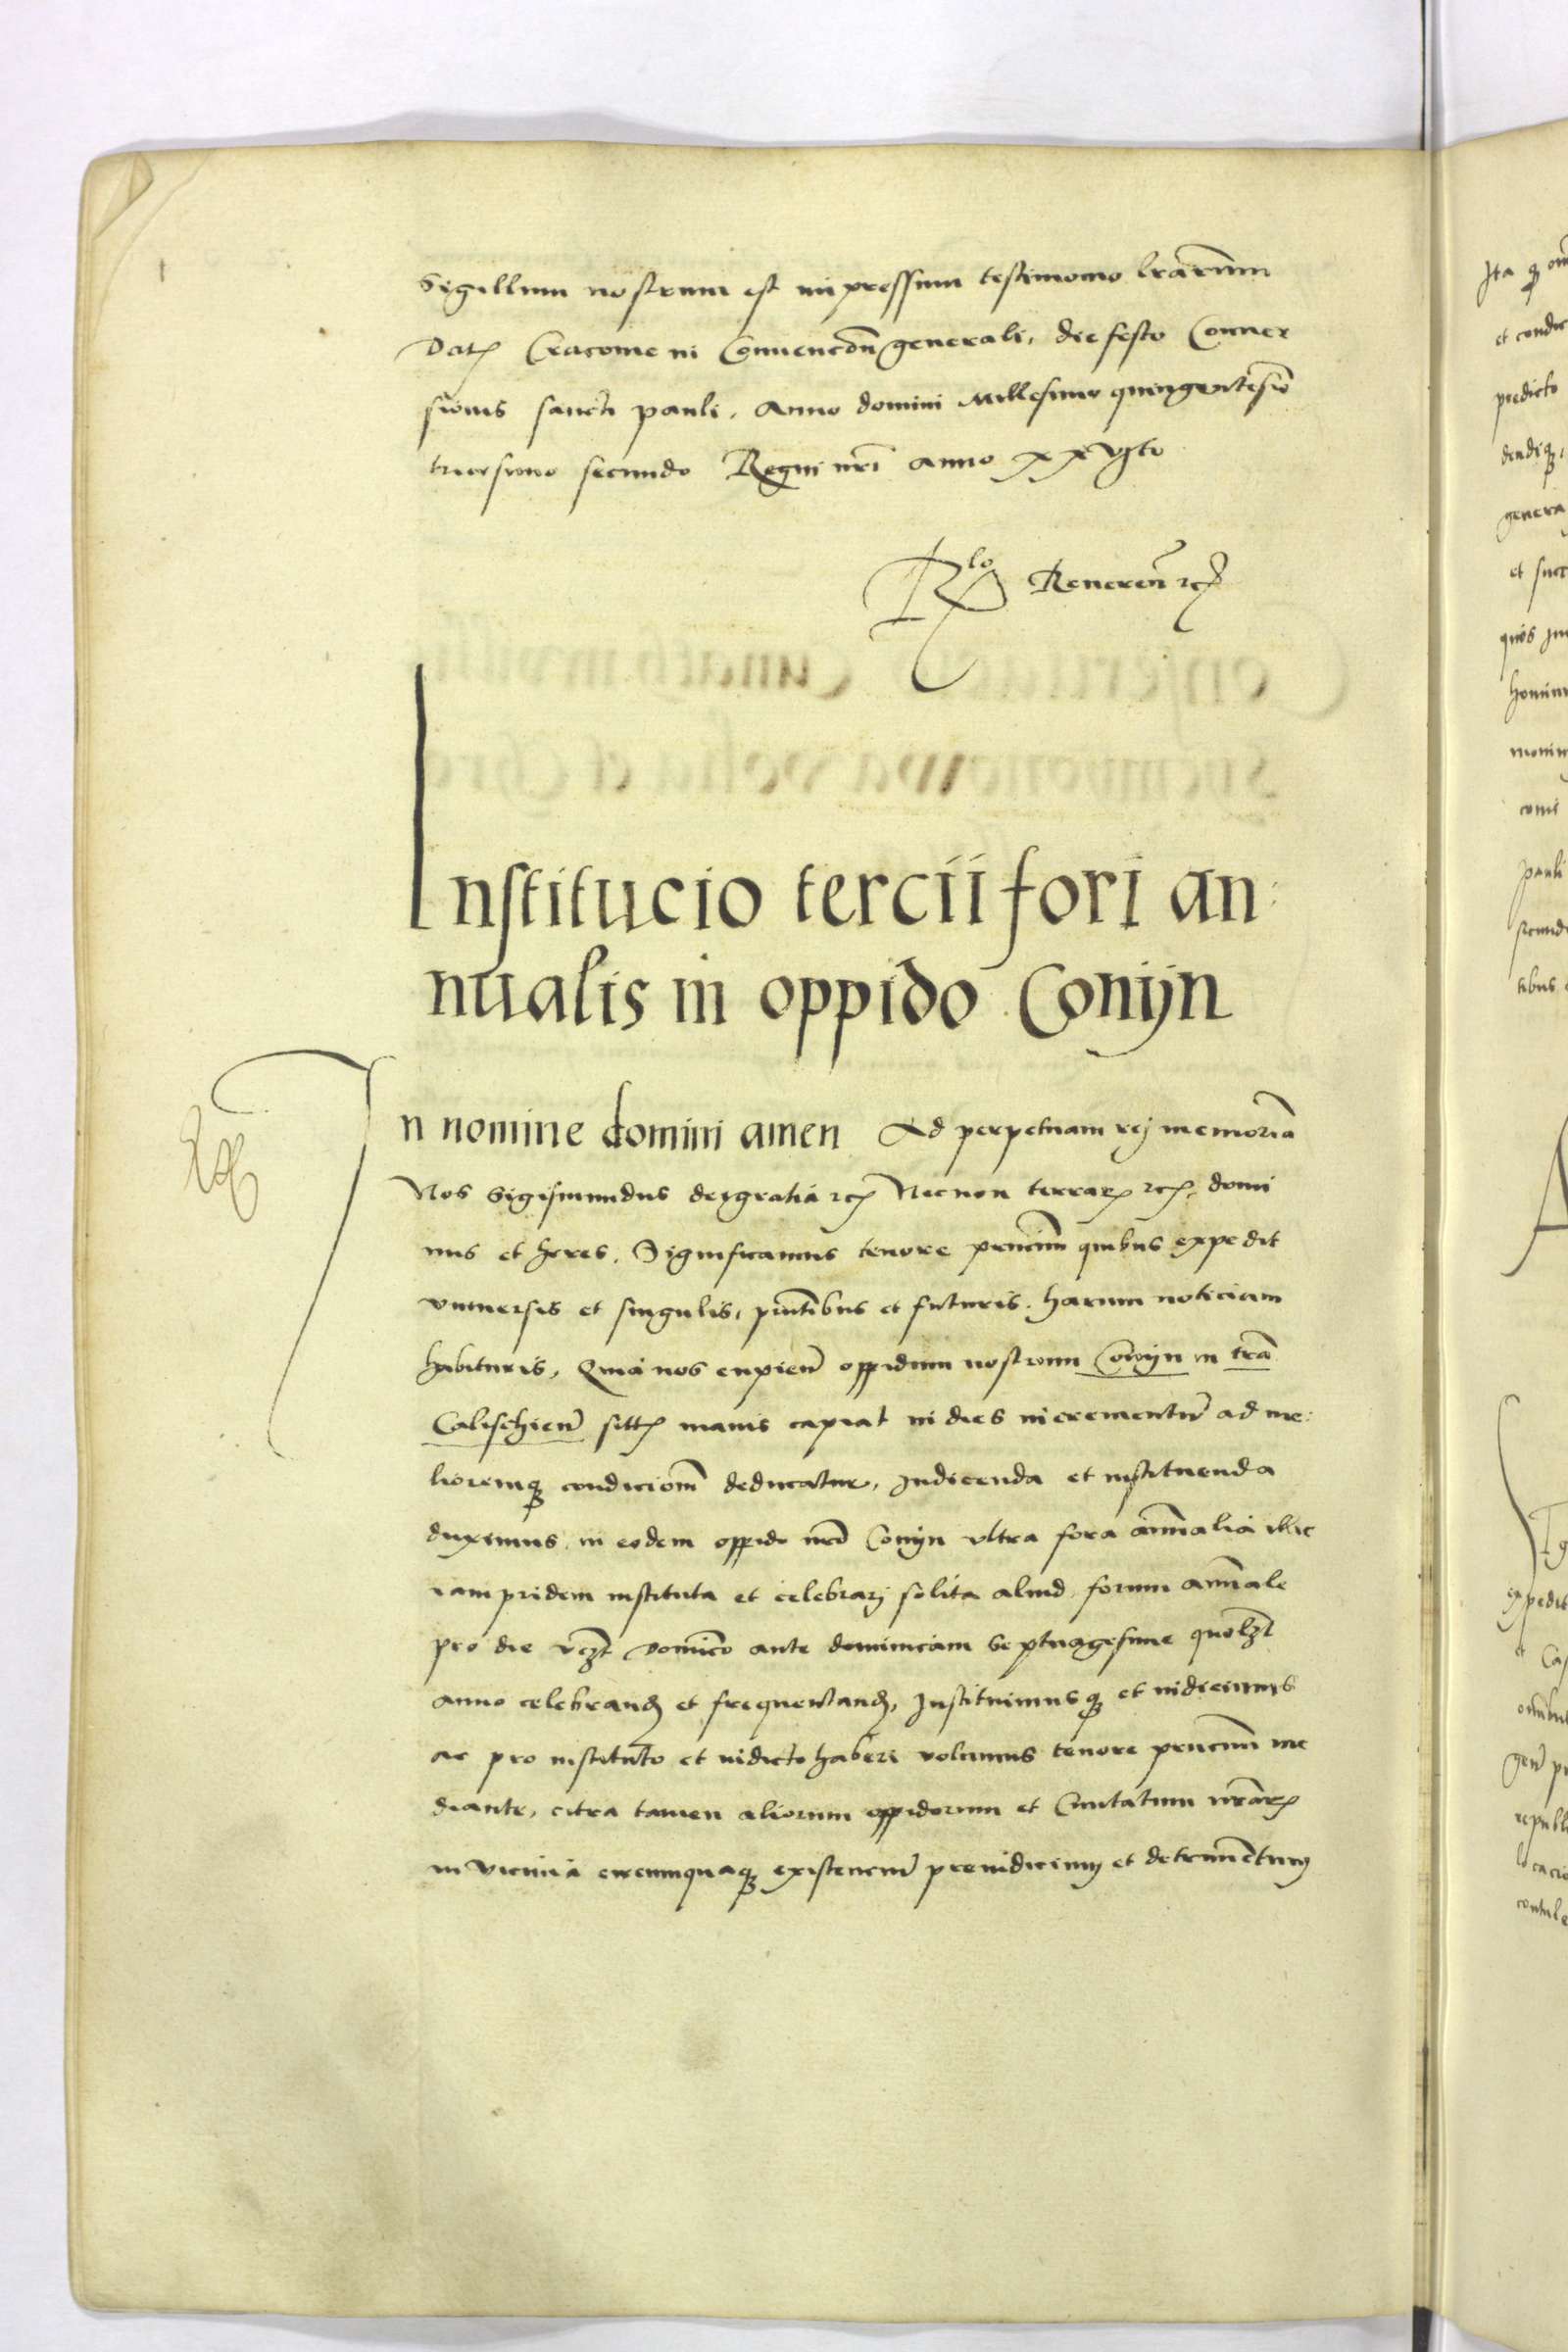 Sigillum nostrum est impressum testimonio lrarum
Dat Cracovie in Convencōn generali, die festo Conver
sionis sancti pauli. Anno domini Millesimo quingentesiō
tricesimo secundo Regni nrī anno xxvjto
Rlō Reveren rc
Institucio tercii fori an
nualis in oppido Conijn
In nomine domini amen Ad perpetuam rej memoriā
Nos Sigismundus dej gratia rc Necnon terrar rc domi
nus et heres. Significamus tenore pncium quibus expedit
vniversis et singulis, pntibus et futuris. harum noticiam
habituris, Quia nos cupien oppidum nostrum Conijn in trā
Calischien sitt maius capiat in dies incrementu ad me:
lioremq condicionē deducatur, Indicenda et instituenda
duximus in eodem oppido nrō Conijn vltra fora annalia illic
iam pridem instituta et celebrarj solita aliud forum annale
pro die vczt dominco ante dominicam Septuagesime quolzt
anno celebrand et frequentand, Instituimusq et indicimus
ac pro instituto et indicto haberi volumus tenore pncium me
diante, citra tamen aliorum oppidorum et Civitatum nrār
in vicinia circumquaq existenciu preiudicium et detrimentum
Ita q
et condic
predicto
dendiq,
genera
et succ
homin
moniu
comi
pauli
secund
tibus
expedit
et Ca
omibu
gen p
republi
locacio
contule